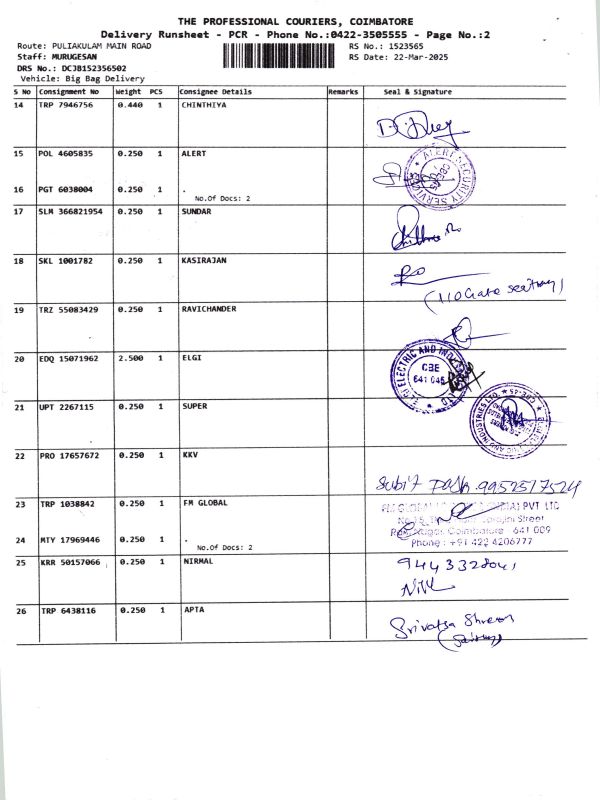 THE PROFESSIONAL COURIERS, COIMBATORE
Delivery Runsheet - PCR - Phone No.:0422-3505555 - Page No.:2
Route: PULIAKULAM MAIN ROAD
RS No.: 1523565
Staff: MURUGESAN
RS Date: 22-Mar-2025
DRS No.: DCJB152356502
Vehicle: Big Bag Delivery
S No Consignment No Weight PCS Consignee Details Remarks Seal & Signature
14 TRP 7946756 0.440 1 CHINTHIYA
15 POL 4605835 0.250 1 ALERT
ALERT SECURITY SERVICES
16 PGT 6038004 0.250 1 .
No.Of Docs: 2
17 SLM 366821954 0.250 1 SUNDAR
18 SKL 1001782 0.250 1 KASIRAJAN
19 TRZ 55083429 0.250 1 RAVICHANDER
20 EDQ 15071962 2.500 1 ELGI
ELECTRIC AND
CBE
641 045
21 UPT 2267115 0.250 1 SUPER
AND INDUSTRIES LTD. CBE-45
22 PRO 17657672 0.250 1 KKV
9952517524
23 TRP 1038842 0.250 1 FM GLOBAL
PVT LTD
Street
Coimbatore 641 009
Phone : +91 422 4206777
24 MTY 17969446 0.250 1 .
No.Of Docs: 2
25 KRR 50157066 0.250 1 NIRMAL
26 TRP 6438116 0.250 1 APTA
Srivatsa